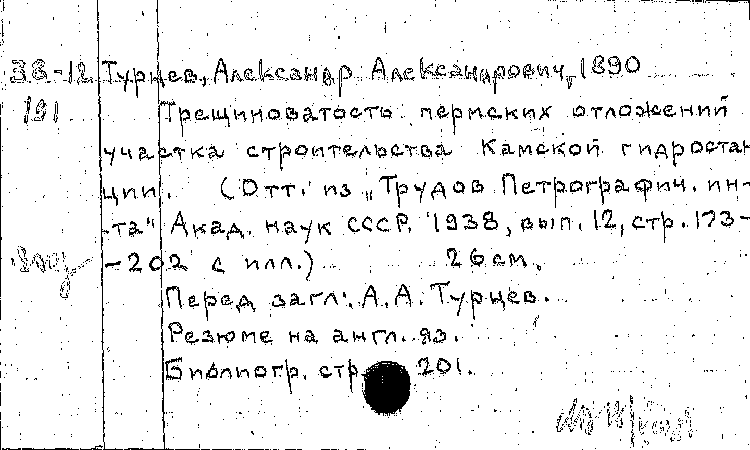 38-12 Турцев, Александр Александрович, 1890
191 Трещиноватость пермских отложений
участка строительства Камской гидростан
ции. (Отт. из „Трудов Петрографич. ин-
-та" Акад. наук СССР. 1938, вып. 12, стр. 173-
-202 с илл.) 26 см.
Перед загл.: А. А. Турцев.
Резюме на англ. яз.
Библиогр. стр. 201.